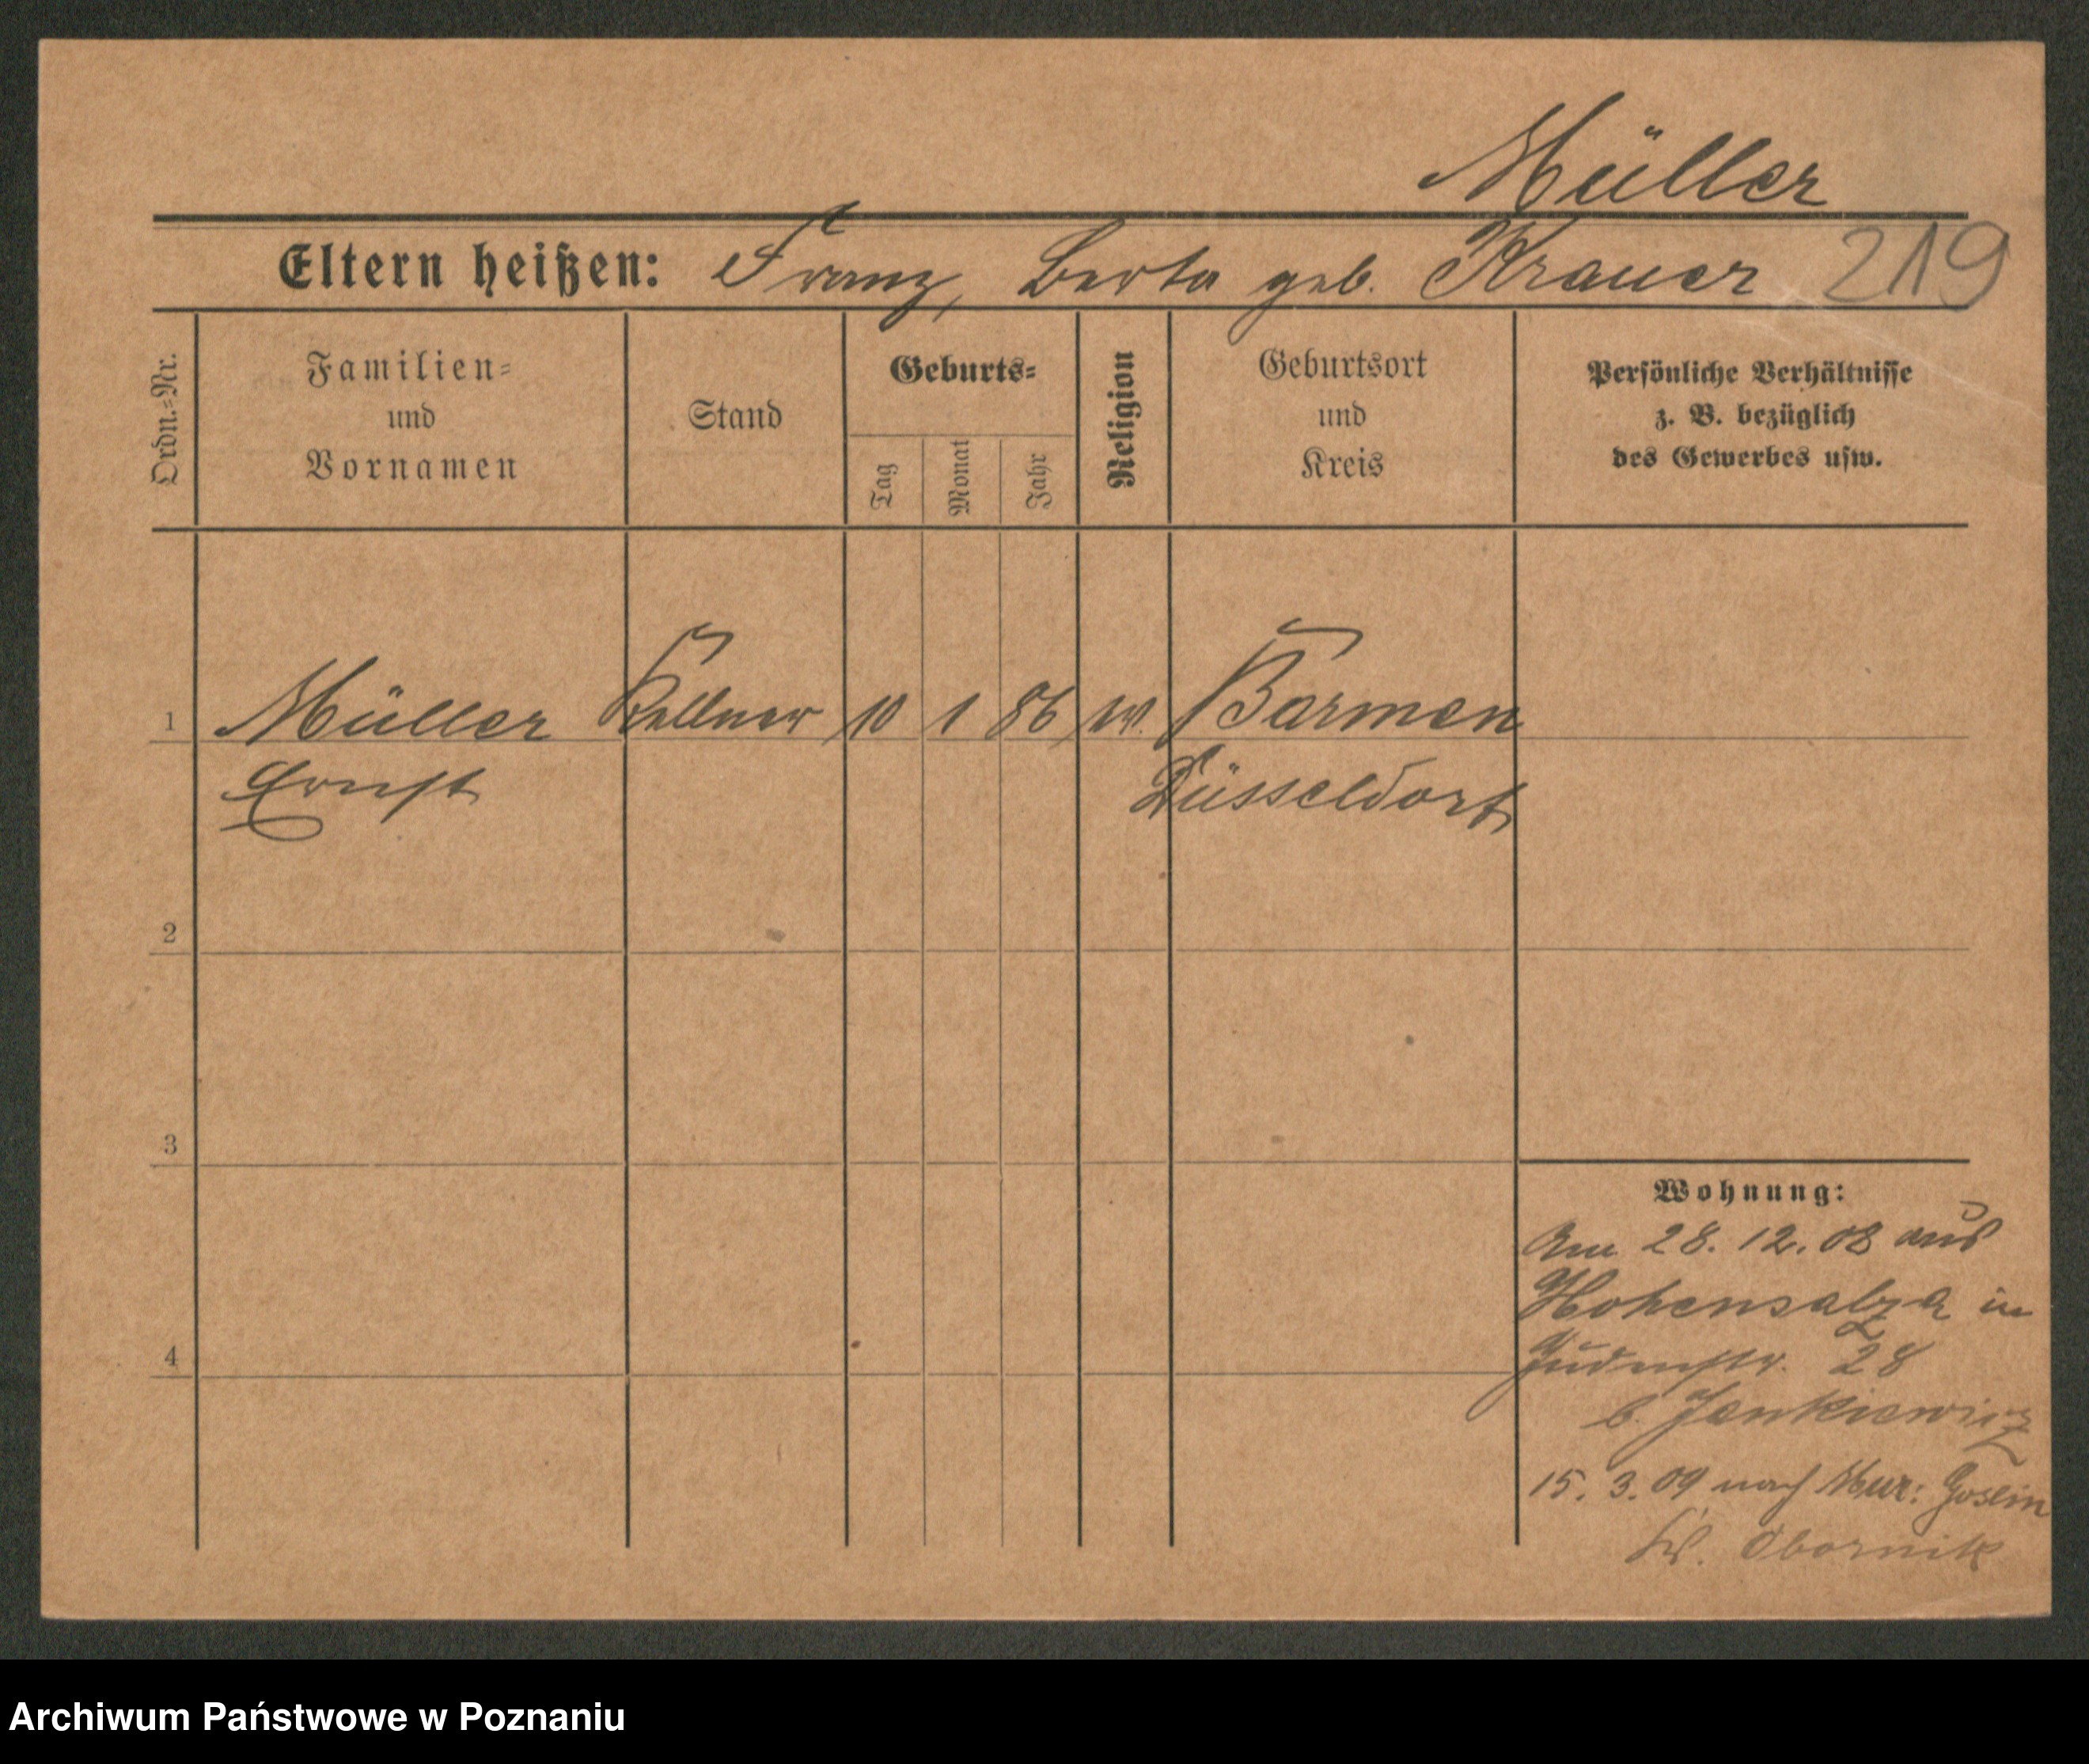 Müller
Eltern heißen: Franz, Berta geb. Krauer 219
Ordn.=Nr.
Familien=
und
Vornamen
Stand
Geburts=
Tag
Monat
Jahr
Religion
Geburtsort
und
Kreis
Persönliche Verhältnisse
z. B. bezüglich
des Gewerbes usw.
1 Müller Kellner 10 1 86 Barmen
Ernst Düsseldorf
2
3
4
Wohnung:
Am 28. 12. 08 aus
Hohensalza in
Judenstr. 28
b. Jankiewicz
15. 3. 09 nach Mur: Goslin
Obornik
Archiwum Państwowe w Poznaniu